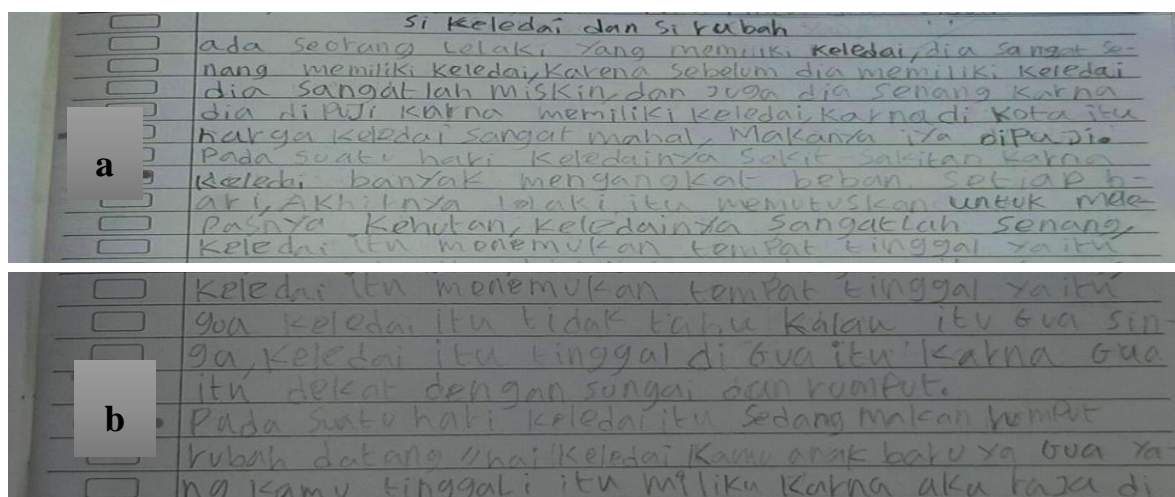 si keledai dan si rubah
ada seorang lelaki yang memiliki keledai, dia sangat se-
nang memiliki keledai, karena sebelum dia memiliki keledai
dia sangatlah miskin, dan juga dia senang karna
dia di puji karna memiliki keledai, karna di kota itu
harga keledai sangat mahal, Makanya iya dipuji.
Pada suatu hari keledainya sakit sakitan karna
keledai banyak mengangkat beban setiap h-
ari, Akhirnya lelaki itu memutuskan untuk mele-
pasnya kehutan, keledainya sangatlah senang,
keledai itu menemukan tempat tinggal yaitu
a
keledai itu menemukan tempat tinggal yaitu
goa keledai itu tidak tahu kalau itu Gua sin
ga, keledai itu tinggal di Gua itu karna Gua
itu dekat dengan sungai dan rumput.
Pada suatu hari keledai itu sedang makan rumput
rubah datang "hai keledai kamu anak baru ya Gua ya-
ng kamu tinggali itu miliku karna aku raja di
b